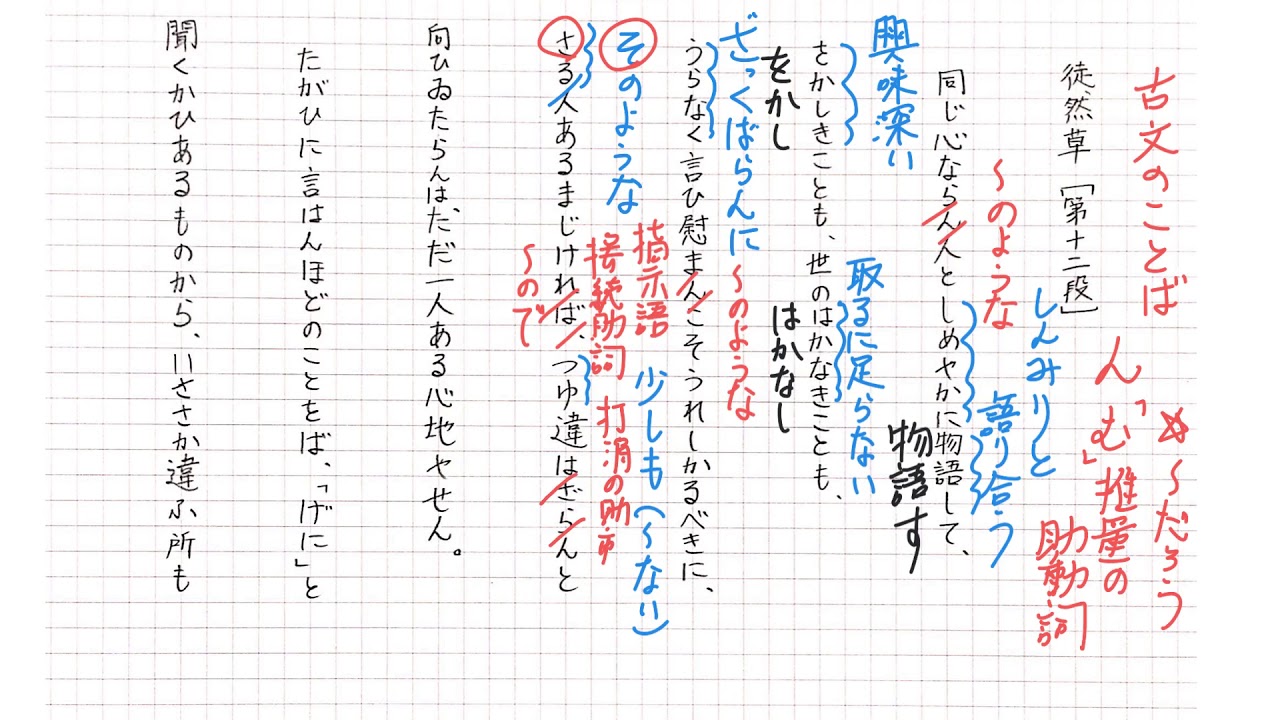 古文のことば
✡〜だろう
ん「む」推量の
助動詞
徒然草［第十二段］
しんみりと
〜のような
語り合う
同じ心ならん人としめやかに物語して、
物語す
興味深い
取るに足らない
をかしきことも、世のはかなきことも、
をかし
はかなし
ざっくばらんに
〜のような
うらなく言ひ慰まんこそうれしかるべきに、
そのような
指示語
少しも(〜ない)
接続助詞
打消の助
さる人あるまじければ、つゆ違はざらんと
〜ので
向ひゐたらんは、ただ一人ある心地やせん。
たがひに言はんほどのことをば、「げに」と
聞くかひあるものから、いささか違ふ所も